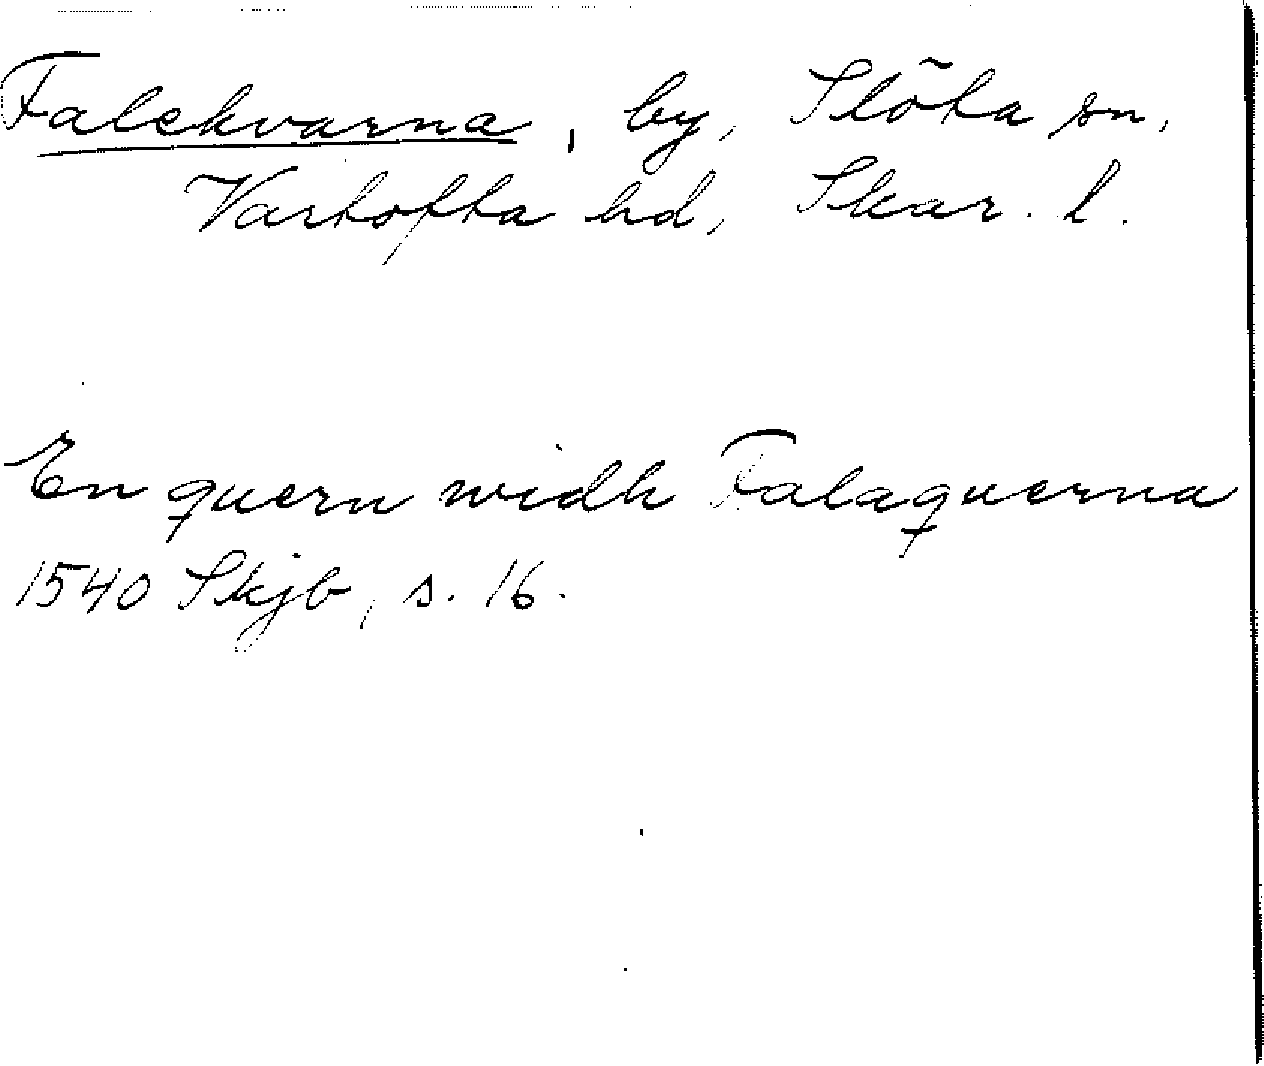 Falekvarna, by, Slöta sn,
Vartofta hd, Skar. l.
En quern widh Falaquerna
1540 Skjb, s. 16.